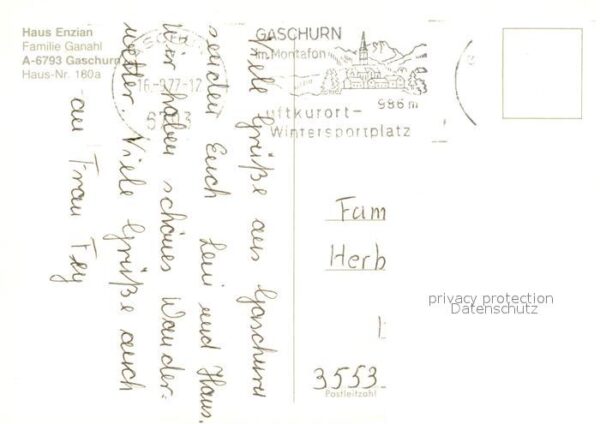 Haus Enzian
Familie Ganahl
A-6793 Gaschurn
Haus-Nr. 180a
GASCHURN
im Montafon
986 m
Luftkurort-
Wintersportplatz
16. 9.77-12
Viele Grüße aus Gaschurn
senden Euch Leni und Hans.
Wir haben schönes Wander-
wetter. Viele Grüße auch
an Frau Fey
Fam
Herb
3553
Postleitzahl
privacy protection
Datenschutz